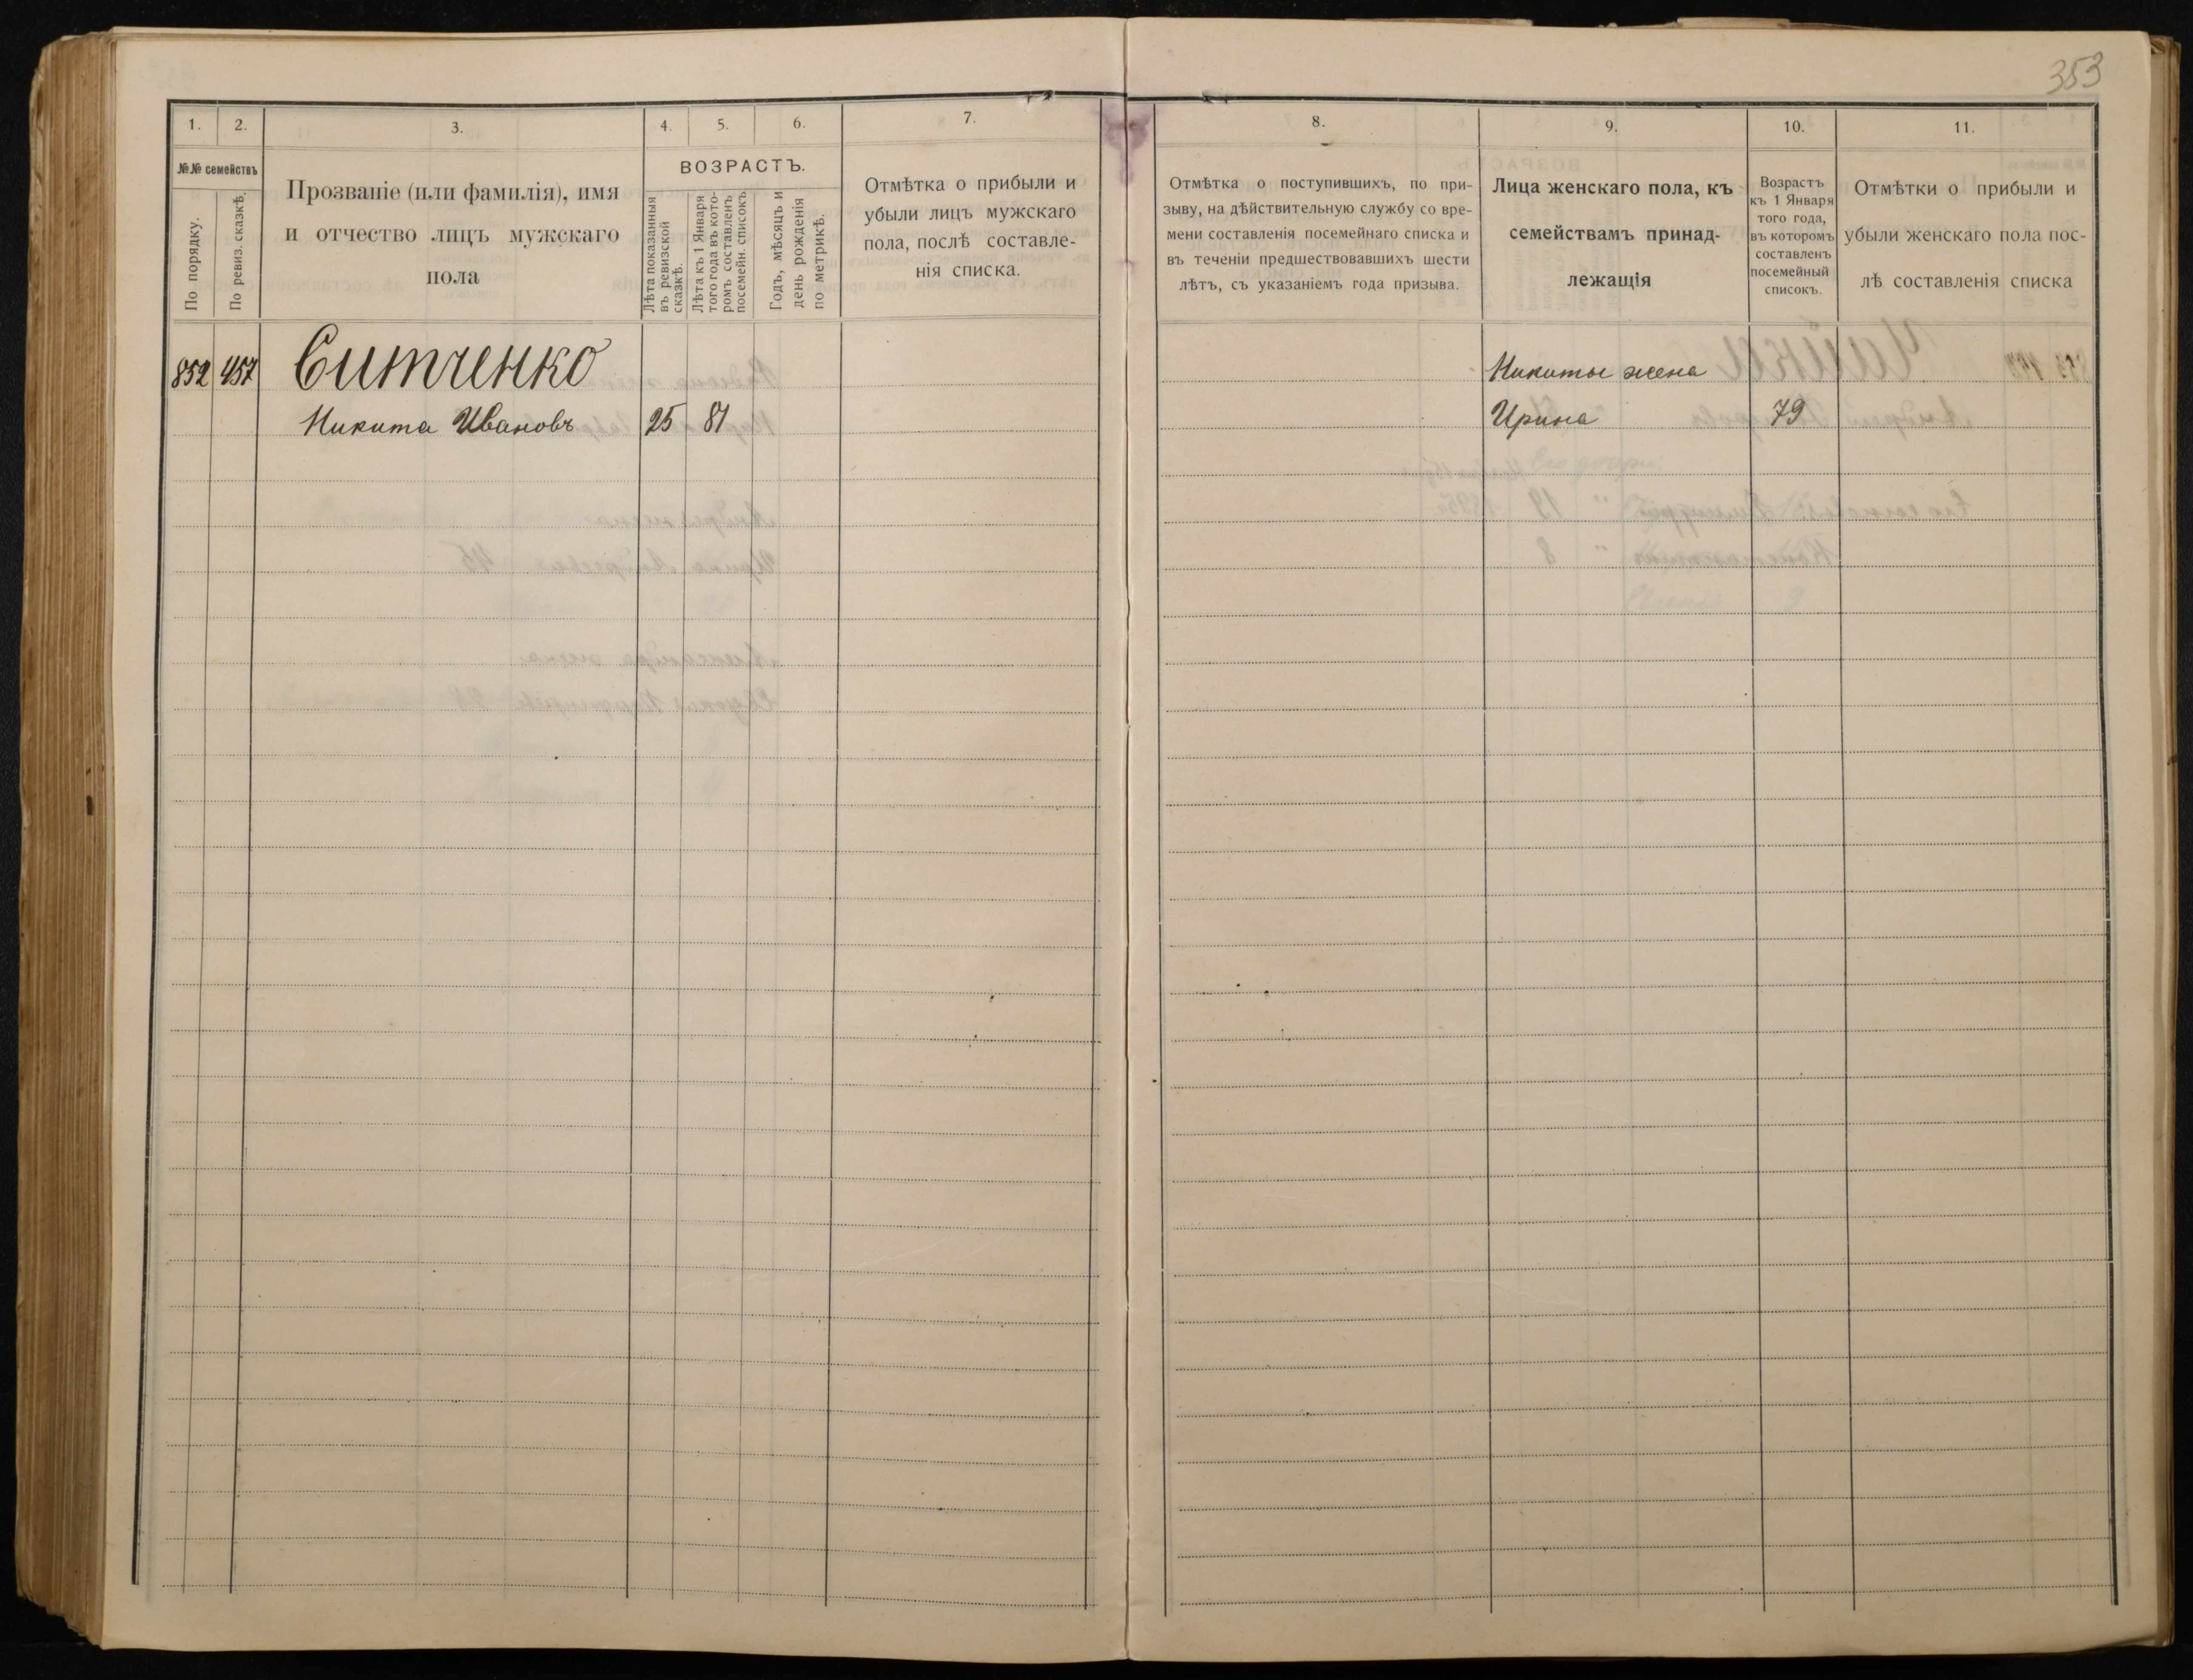 353
1.
2.
3.
4.
5.
6.
7.
№№ семействъ
По порядку.
По ревиз. сказкѣ.
Прозваніе (или фамилія), имя
и отчество лицъ мужскаго
пола
ВОЗРАСТЪ.
Лѣта показанныя
въ ревизской
сказкѣ.
Лѣта къ 1 Января
того года въ кото-
ромъ составленъ
посемейн. списокъ
Годъ, мѣсяцъ и
день рожденія
по метрикѣ.
Отмѣтка о прибыли и
убыли лицъ мужскаго
пола, послѣ составле-
нія списка.
852 457 Ситченко
Никита Ивановъ 25 81
8.
9.
10.
11.
Отмѣтка о поступившихъ, по при-
зыву, на дѣйствительную службу со вре-
мени составленія посемейнаго списка и
въ теченіи предшествовавшихъ шести
лѣтъ, съ указаніемъ года призыва.
Лица женскаго пола, къ
семействамъ принад-
лежащія
Возрастъ
къ 1 Января
того года,
въ которомъ
составленъ
посемейный
списокъ.
Отмѣтки о прибыли и
убыли женскаго пола пос-
лѣ составленія списка
Никиты жена
Ирина 79